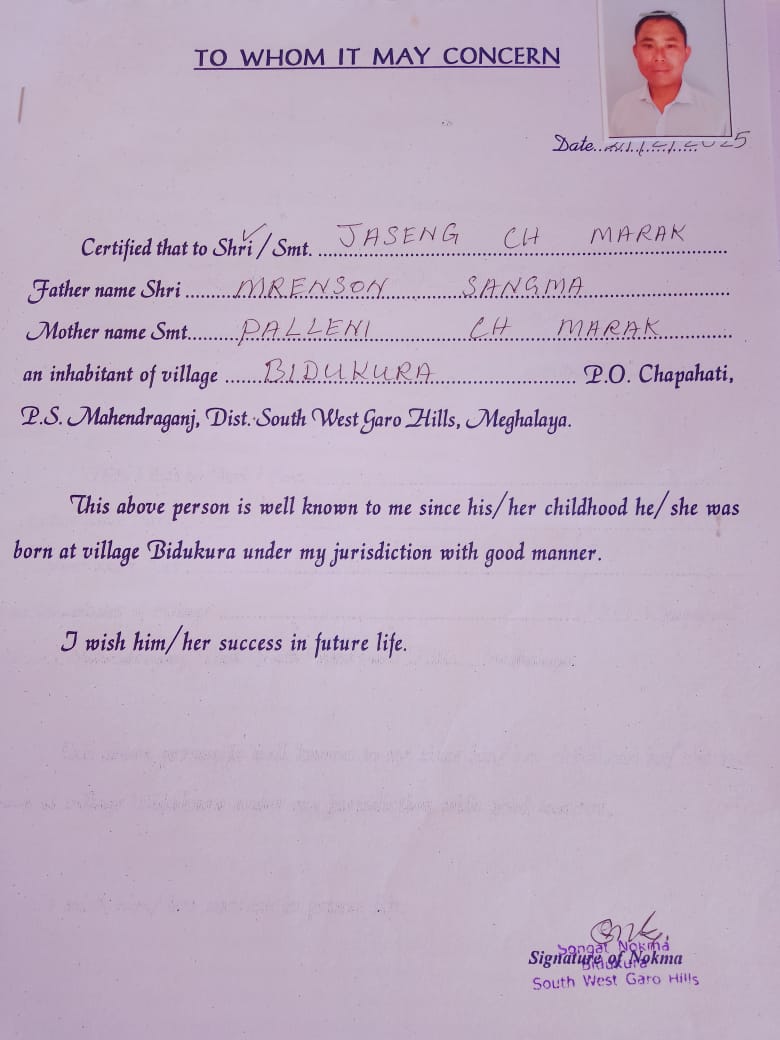 TO WHOM IT MAY CONCERN
Date 2025
Certified that to Shri / Smt. JASENG CH MARAK
Father name Shri MRENSON SANGMA
Mother name Smt. PALLENI CH MARAK
an inhabitant of village BIDUKURA P.O. Chapahati,
P.S. Mahendraganj, Dist. South West Garo Hills, Meghalaya.
This above person is well known to me since his/her childhood he/she was
born at village Bidukura under my jurisdiction with good manner.
I wish him/her success in future life.
Songat Nokma
Signature of Nokma
Bidukura
South West Garo Hills